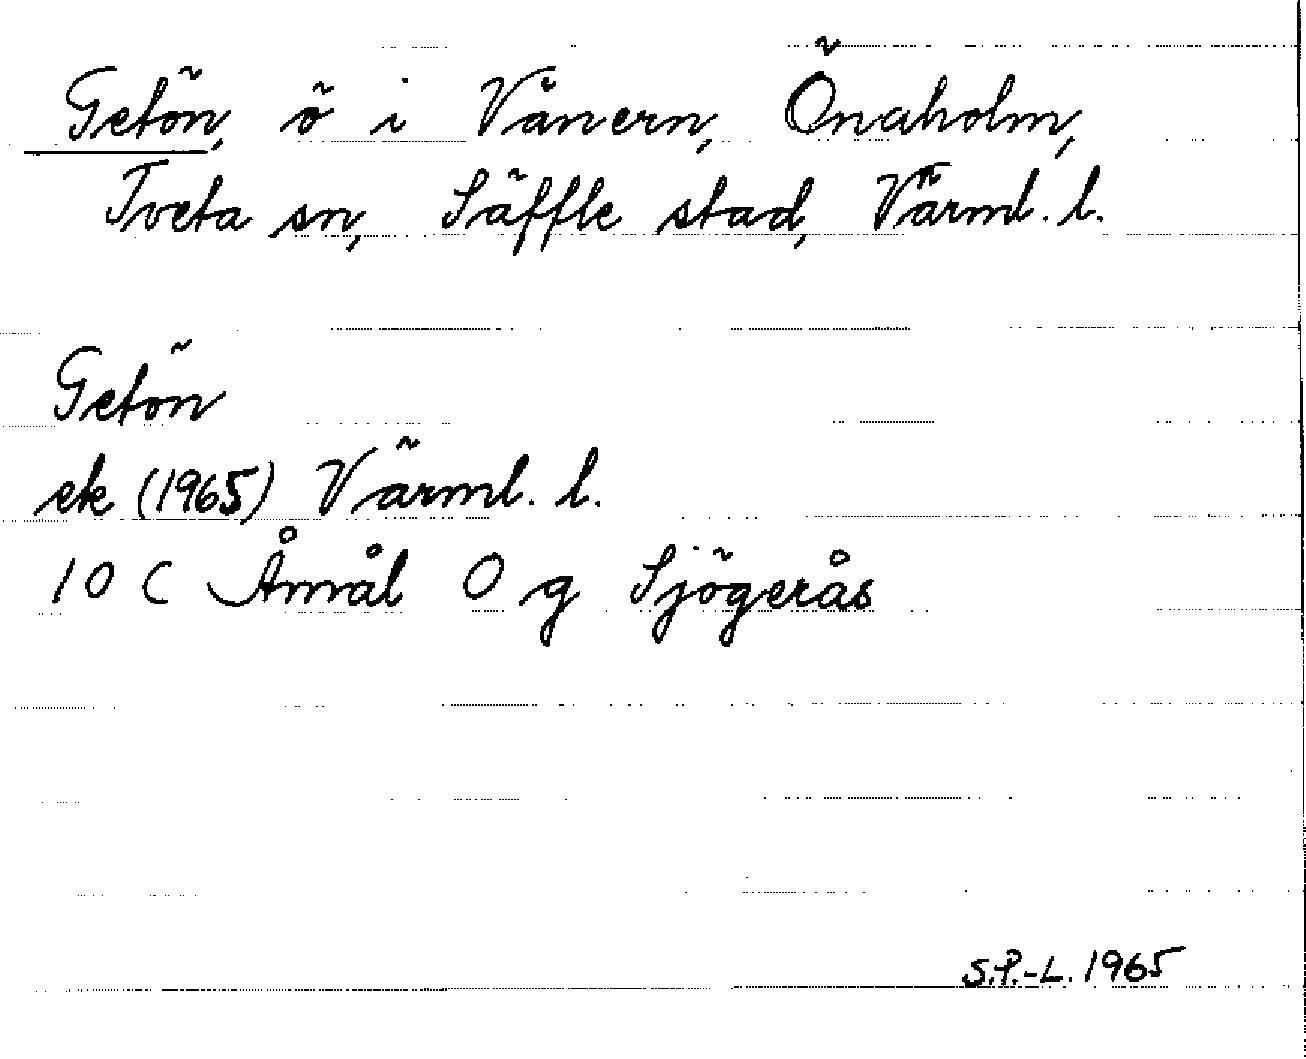 Getön, ö i Vänern, Önaholm,
Tveta sn, Säffle stad, Värml. l.
Getön
ek (1965) Värml. l.
10 C Åmål O g Sjögerås
S.P.-L. 1965